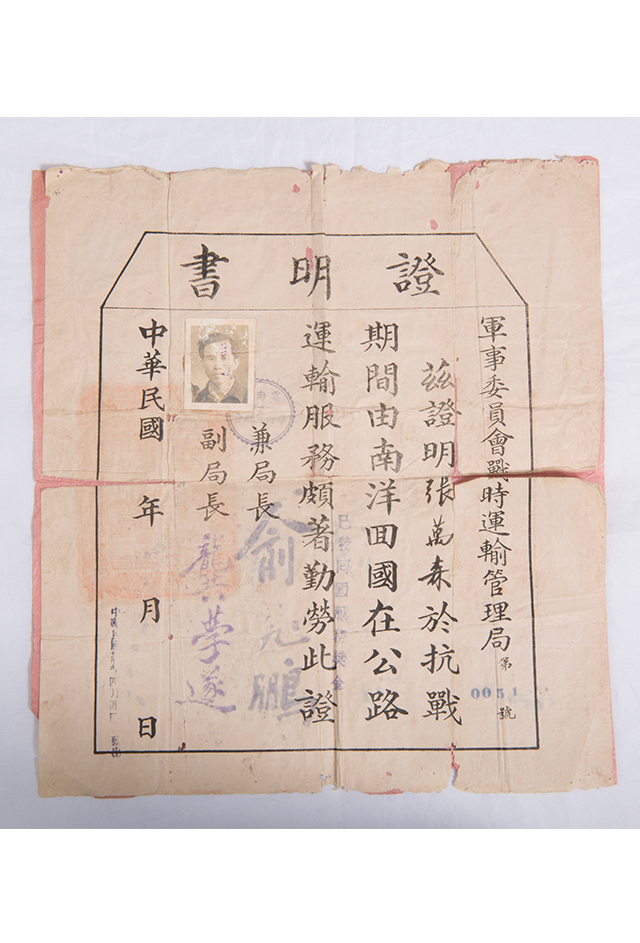 證明書
軍事委員會戰時運輸管理局 第 0051 號
茲證明張萬森於抗戰
期間由南洋回國在公路
運輸服務頗著勤勞此證
已發回國服務獎金
兼局長 俞飛鵬
副局長 龔學遂
中華民國 年 月 日